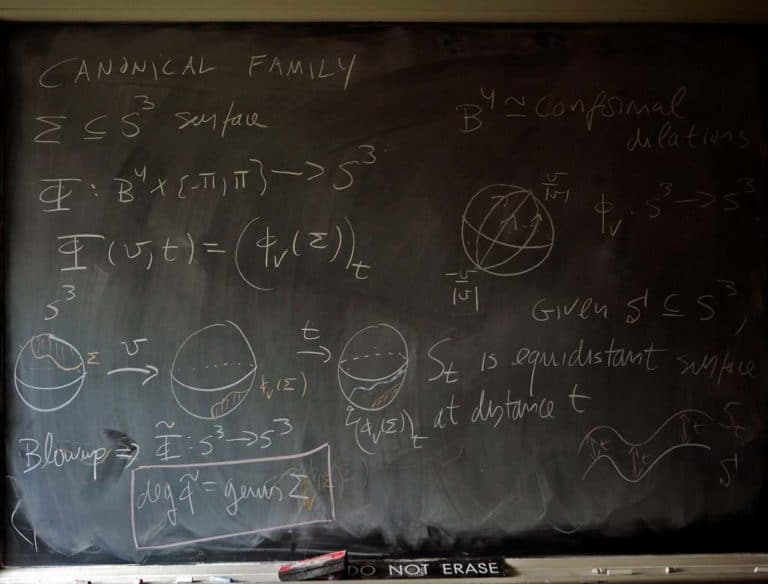 CANONICAL FAMILY
Σ ⊆ S³ surface
Φ : B⁴ × [-π, π] → S³
Φ(v, t) = (ϕᵥ(Σ))ₜ
B⁴ ≃ conformal
dilations
v/|v|
ϕᵥ : S³ → S³
-v/|v|
Given S ⊆ S³,
Sₜ is equidistant surface
at distance t
S³
Σ
v
ϕᵥ(Σ)
t
(ϕᵥ(Σ))ₜ
Blowup ⇒ Φ̃ : S³ → S³
deg Φ̃ = genus Σ
t
S
DO NOT ERASE